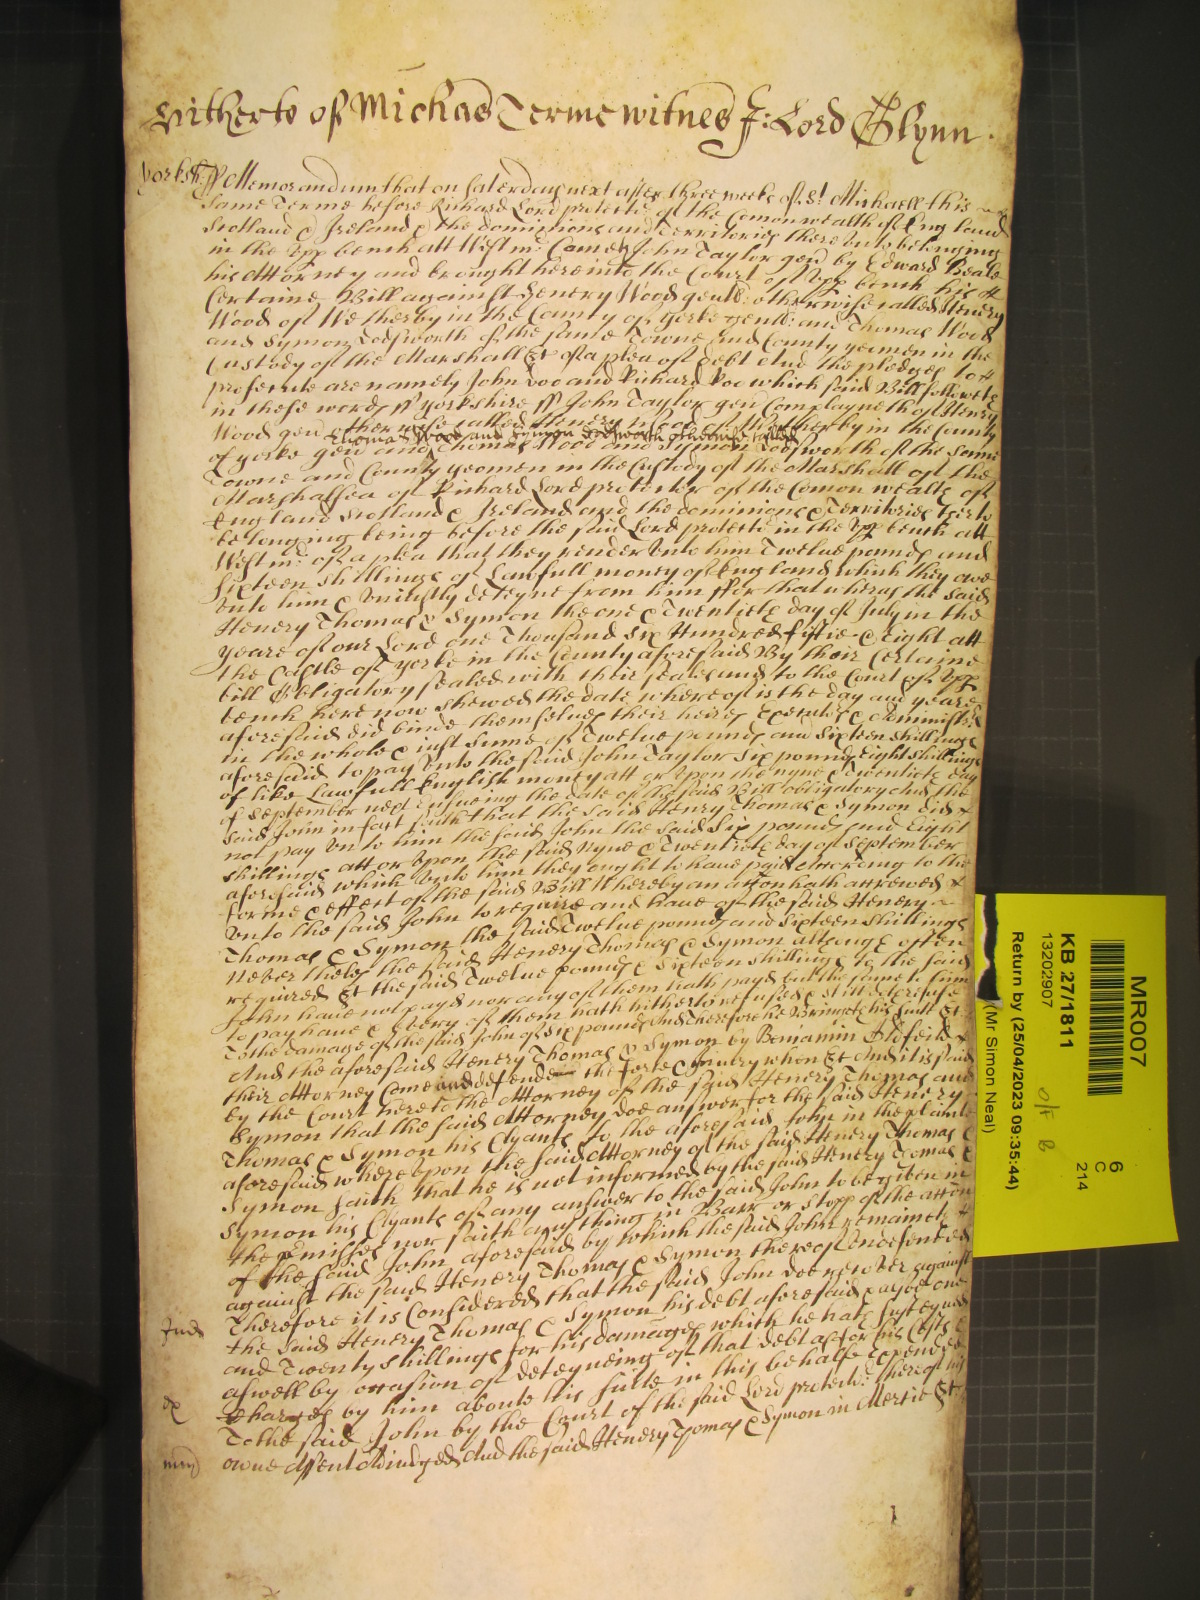 Hitherto of Michas Terme witnes J: Lord Glynn.
Yorksh ff Memorandum that on Saterday next after three weeks of St Michaell this
same Terme before Richard Lord protector of the Comon wealth of England
Scotland & Ireland & the dominions and Territories thereunto belonging
in the upp bench att Westmr Comes John Taylor gen by Edward Beale
his Attorney and brought here into the Court of upp bench his
Certaine Bill against Henery Wood gentl: otherwise called Henery
Wood of Wetherby in the County of Yorke gentl: and Thomas Wood
and Symon Lodsworth of the same Towne and County yeomen in the
Custody of the Marshall &c of a plea of debt And the pledges to
prosecute are namely John Doo and Richard Roo which said Bill followeth
in these words ff Yorkshire ff John Taylor gen Complayneth of Henery
Wood gen otherwise called Henery Wood of Wetherby in the County
Thomas Wood and Symon Lodsworth otherwise called
of Yorke gen and Thomas Wood and Symon Lodsworth of the same
Towne and County yeomen in the Custody of the Marshall of the
Marshalsea of Richard Lord protector of the Comon wealth of
England Scotland & Ireland and the dominions & Territories therto
belonging being before the said Lord protector in the upp bench att
Westmr of a plea that they render unto him Twelve pounds and
Sixteen shillings of Lawfull money of England which they owe
unto him & uniustly deteyne from him ffor that wheras the said
Henery Thomas & Symon the one & Twentieth day of July in the
yeare of our Lord one Thousand Six Hundred fiftie & Eight att
the Castle of Yorke in the County aforesaid By their Certaine
bill Obligatory sealed with their seales and to the Court of upp
bench here now shewed the date whereof is the day and yeare
aforesaid did binde themselves their heires Executors & Administrs
in the whole & iust Sume of Twelve pounds and Sixteen shillings
aforesaid to pay unto the said John Taylor Six pounds Eight shillings
of like Lawfull English money att or upon the nyne & Twentieth day
of September next ensueing the date of the said Bill obligatory And the
said John in fact saith that the said Henery Thomas & Symon did
not pay unto him the said John the said Six pounds and Eight
shillings att or upon the said Nyne & Twentieth day of September
aforesaid which unto him they ought to have paid According to the
forme & effect of the said Bill Whereby an accon hath accrewed
unto the said John to require and have of the said Henery
Thomas & Symon the said Twelve pounds and Sixteen shillings
Neverthelesse the said Henery Thomas & Symon although often
required &c the said Twelve pounds & Sixteen shillings to the said
John have not payd nor any of them hath payd but the same to him
to pay have & every of them hath hitherto refused & still doe refuse
To the damage of the said John of six pounds And Therefore he Bringeth his suite &c
And the aforesaid Henery Thomas & Symon by Beniamin Oldfeild
their Attorney Come and defende the force & iniury when &c And it is said
by the Court here to the Attorney of the said Henery Thomas and
Symon that the said Attorney doe answer for the said Henery
Thomas & Symon his Clyants to the aforesaid John in the plainte
aforesaid whereupon the said Attorney of the said Henery Thomas &
Symon saith that he is not informed by the said Henery Thomas &
Symon his Clyants of any answer to the said John to be given in
the pmisses nor saith any thing in Barr or stopp of the accon
of the said John aforesaid by which the said John remaineth
against the said Henery Thomas & Symon thereof undefended
Jud Therefore it is Considered that the said John doe recover against
the said Henery Thomas & Symon his debt aforesaid & alsoe one
and Twenty shillings for his damages which he hath susteyned
aswell by occasion of deteyneing of that debt as for his Costs &
charges by him aboute his suite in this behalfe Expended
To the said John by the Court of the said Lord protector thereof his
owne Assent Adiudged And the said Henery Thomas & Symon in Mercie &c
MR007
KB 27/1811
13202907
Return by (25/04/2023 09:35:44)
(Mr Simon Neal)
6
C
214